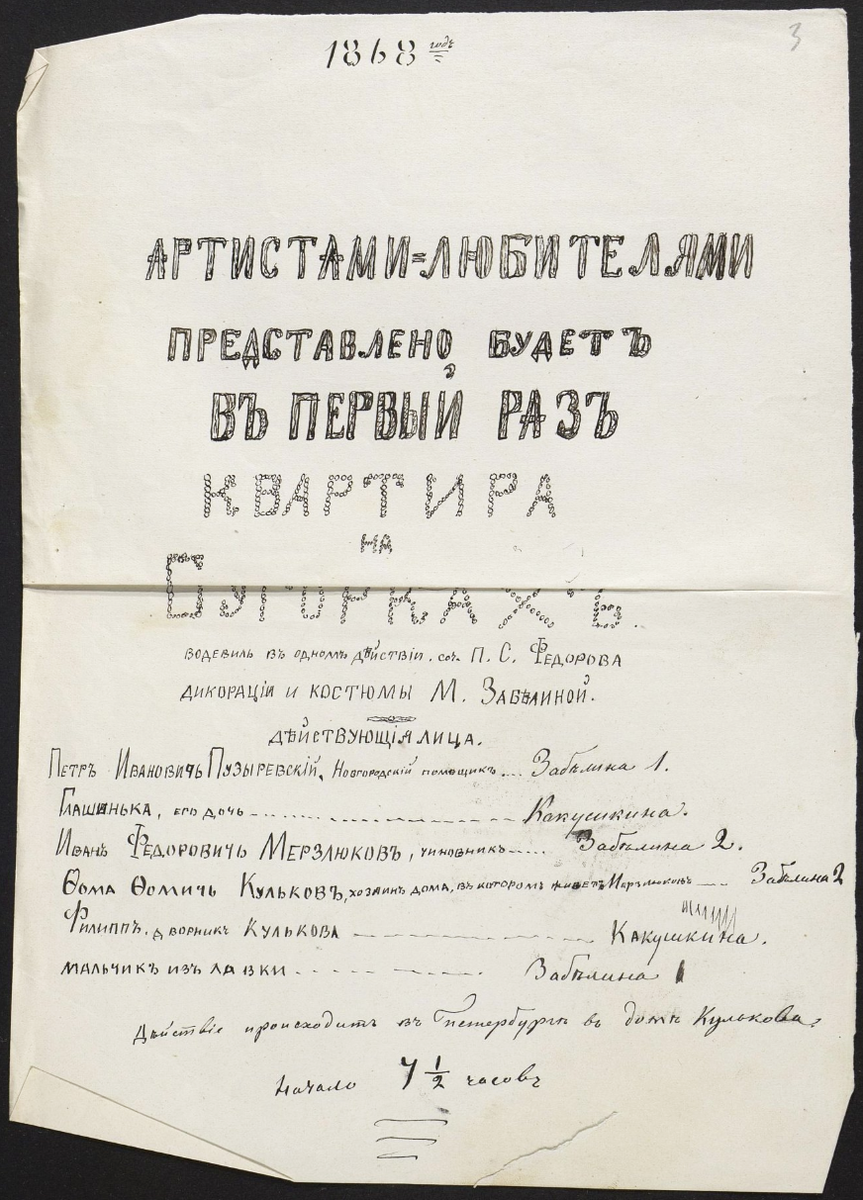 3
1868 годъ
АРТИСТАМИ=ЛЮБИТЕЛЯМИ
ПРЕДСТАВЛЕНО БУДЕТЪ
ВЪ ПЕРВЫЙ РАЗЪ
КВАРТИРА
НА
БУГОРКАХЪ.
ВОДЕВИЛЬ ВЪ ОДНОМЪ ДѢЙСТВІИ. соч. П. С. ФЕДОРОВА
ДИКОРАЦІИ И КОСТЮМЫ М. ЗАБѢЛИНОЙ.
ДѢЙСТВУЮЩІЯ ЛИЦА.
ПЕТРЪ ИВАНОВИЧЬ ПУЗЫРЕВСКІЙ, НОВГОРОДСКІЙ ПОМѢЩИКЪ... Забѣлина 1.
ГЛАШИНЬКА, ЕГО ДОЧЬ - - - Какушкина.
ИВАНЪ ФЕДОРОВИЧЬ МЕРЗЛЮКОВЪ, ЧИНОВНИКЪ - - - Забѣлина 2.
ѲОМА ѲОМИЧЬ КУЛЬКОВЪ, ХОЗЯИНЪ ДОМА, ВЪ КОТОРОМЪ ЖИВЕТЪ МЕРЗЛЮКОВЪ - - - Забѣлина 2
ФИЛИППЪ, ДВОРНИКЪ КУЛЬКОВА - - - Какушкина.
МАЛЬЧИКЪ ИЗЪ ЛАВКИ - - - Забѣлина 1
Дѣйствіе происходитъ въ Петербургѣ въ домѣ Кулькова.
Начало 7 1/2 часовъ